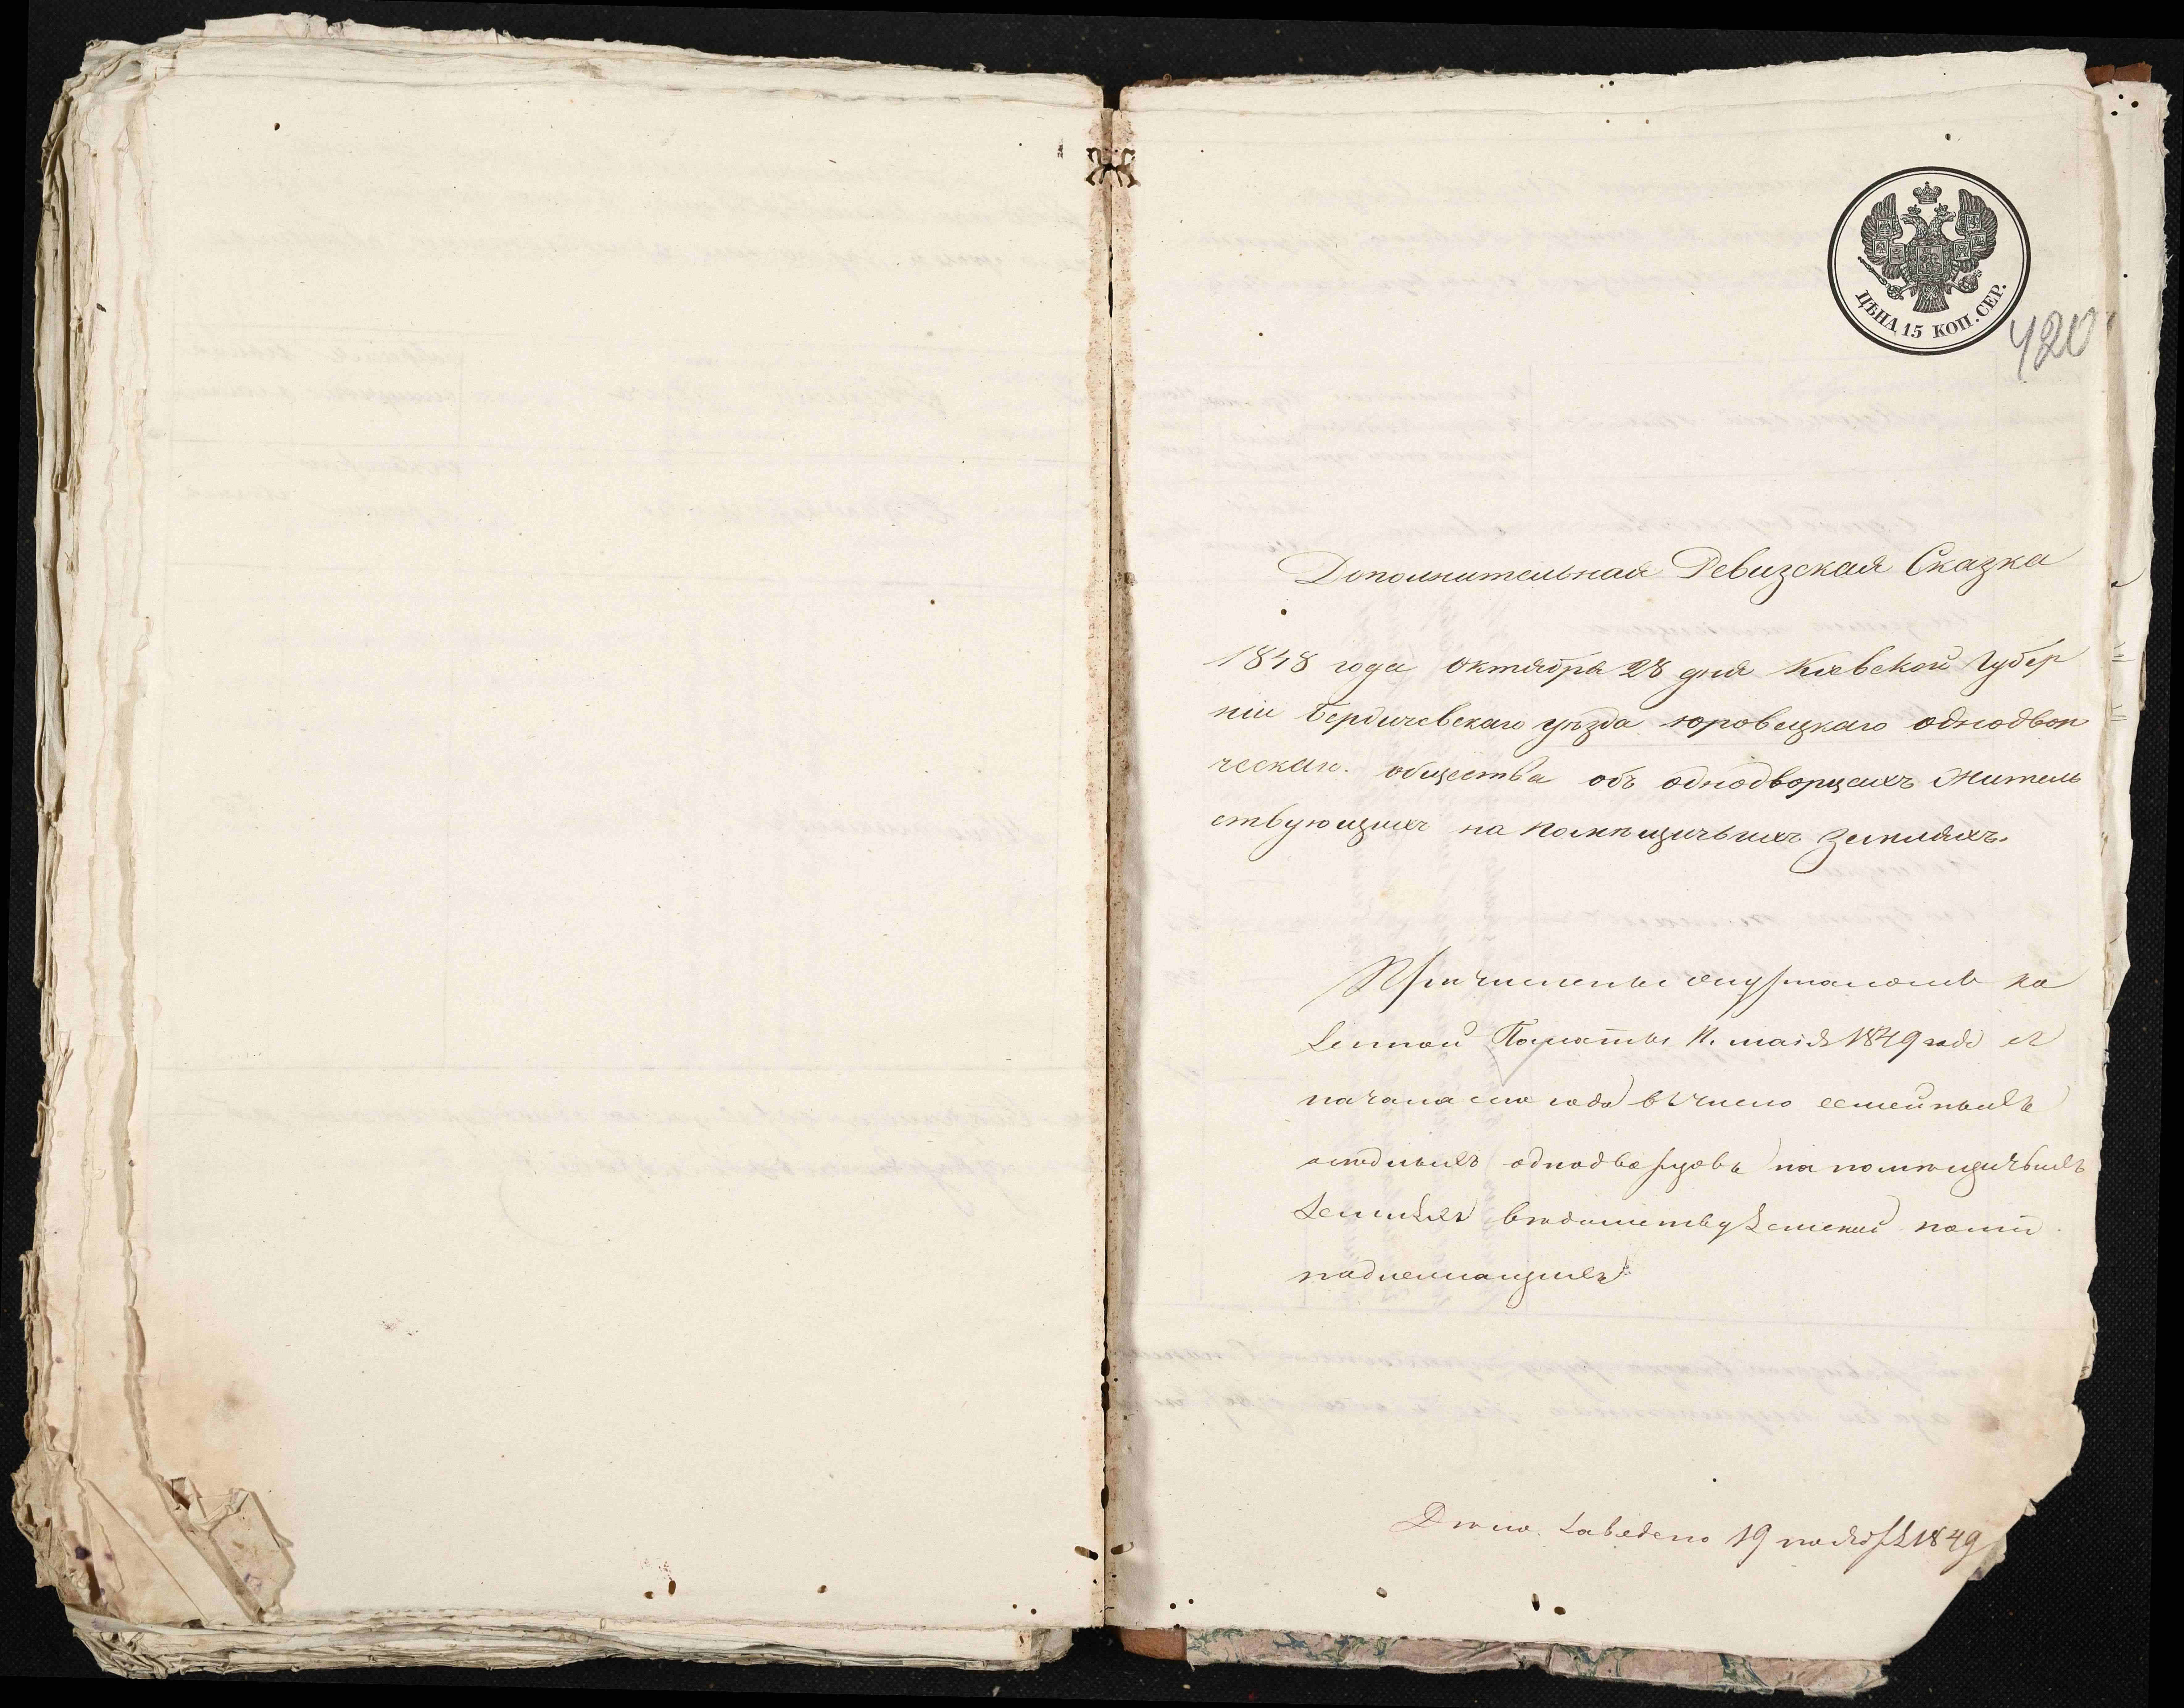 ЦѢНА 15 КОП. СЕР.
420
Дополнительная Ревизская Сказка
1848 года октября 28 дня Киевской Губер
ніи Бердичевскаго уѣзда юровецкаго однодвор
ческаго общества объ однодворцахъ житель
ствующихъ на помѣщичьихъ земляхъ.
Причислены журналомъ Ка
зенной Палаты маія 1849 года съ
начала сего года въ число
однодворцовъ на помѣщичьихъ
земляхъ
подлежащихъ
Дѣло заведено 19 ноября 1849